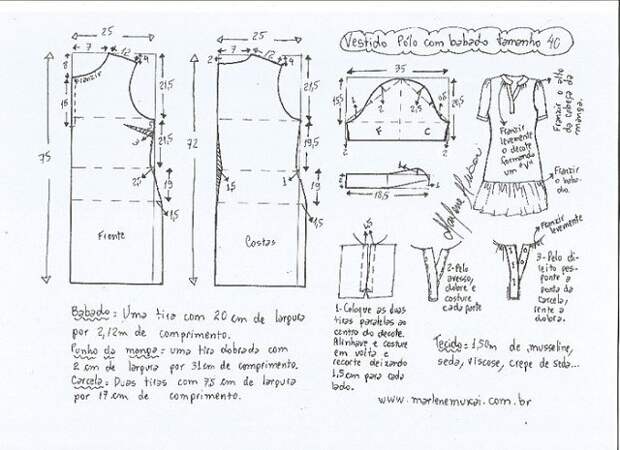 Vestido Pólo com babado tamanho 40
25
7
12
4
8
Franzir
15
21,5
75
21,5
3
2,5
19
1,5
Frente
25
7
12
4
2
21,5
72
21,5
1,5
1
19
1,5
Costas
35
15
2
2
F
C
2
2
18,5
Franzir o alto
da cabeça da
manga.
Franzir
levemente
o decote
formando
um "V"
Franzir
o baba-
do.
Marlene Mukai
Franzir
levemente
1- Coloque as duas
tiras paralelas ao
centro do decote.
Alinhave, e costure
em volta e
recorte deixando
1,5cm para cada
lado.
2- Pelo
avesso,
dobre e
costure
cada parte
3- Pelo di-
reito pes-
ponte a
ponta da
carcela,
rente a
dobra.
Babado = Uma tira com 20 cm de largura
por 2,12m de comprimento.
Punho da manga = uma tira dobrada com
2 cm de largura por 31cm de comprimento.
Carcela = Duas tiras com 7,5 cm de largura
por 17 cm de comprimento.
Tecido = 1,50m de musseline,
seda, viscose, crepe de seda...
www.marlenemukai.com.br